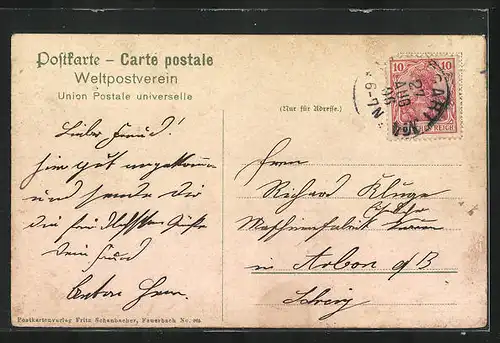 Postkarte – Carte postale
Weltpostverein
Union Postale universelle
(Nur für Adresse.)
10 10
27
AUG
6-7N
REICH
Lieber Freund!
hier gut angekommen
und sende dir
die freundlichsten Grüße
Dein Freund
Herrn
Richard Kluge
Maschinenfabrik
in Arbon a/B
Schweiz
Postkartenverlag Fritz Schanbacher, Feuerbach No.